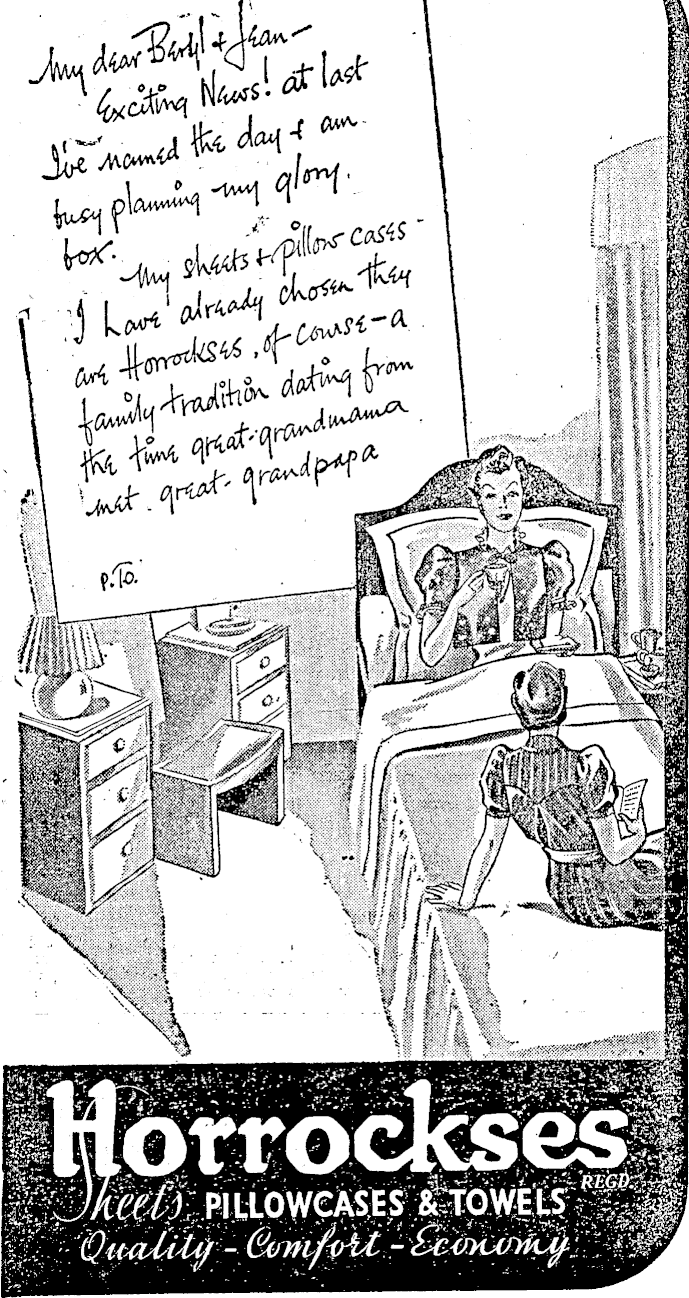 My dear Beryl & Jean —
Exciting News! at last
I've named the day & am
busy planning my glory.
box.
My sheets & pillow cases -
I have already chosen they
are Horrockses, of course — a
family tradition dating from
the time great-grandmama
met great-grandpapa
P.T.O.
Horrockses
REGD
Sheets PILLOWCASES & TOWELS
Quality - Comfort - Economy